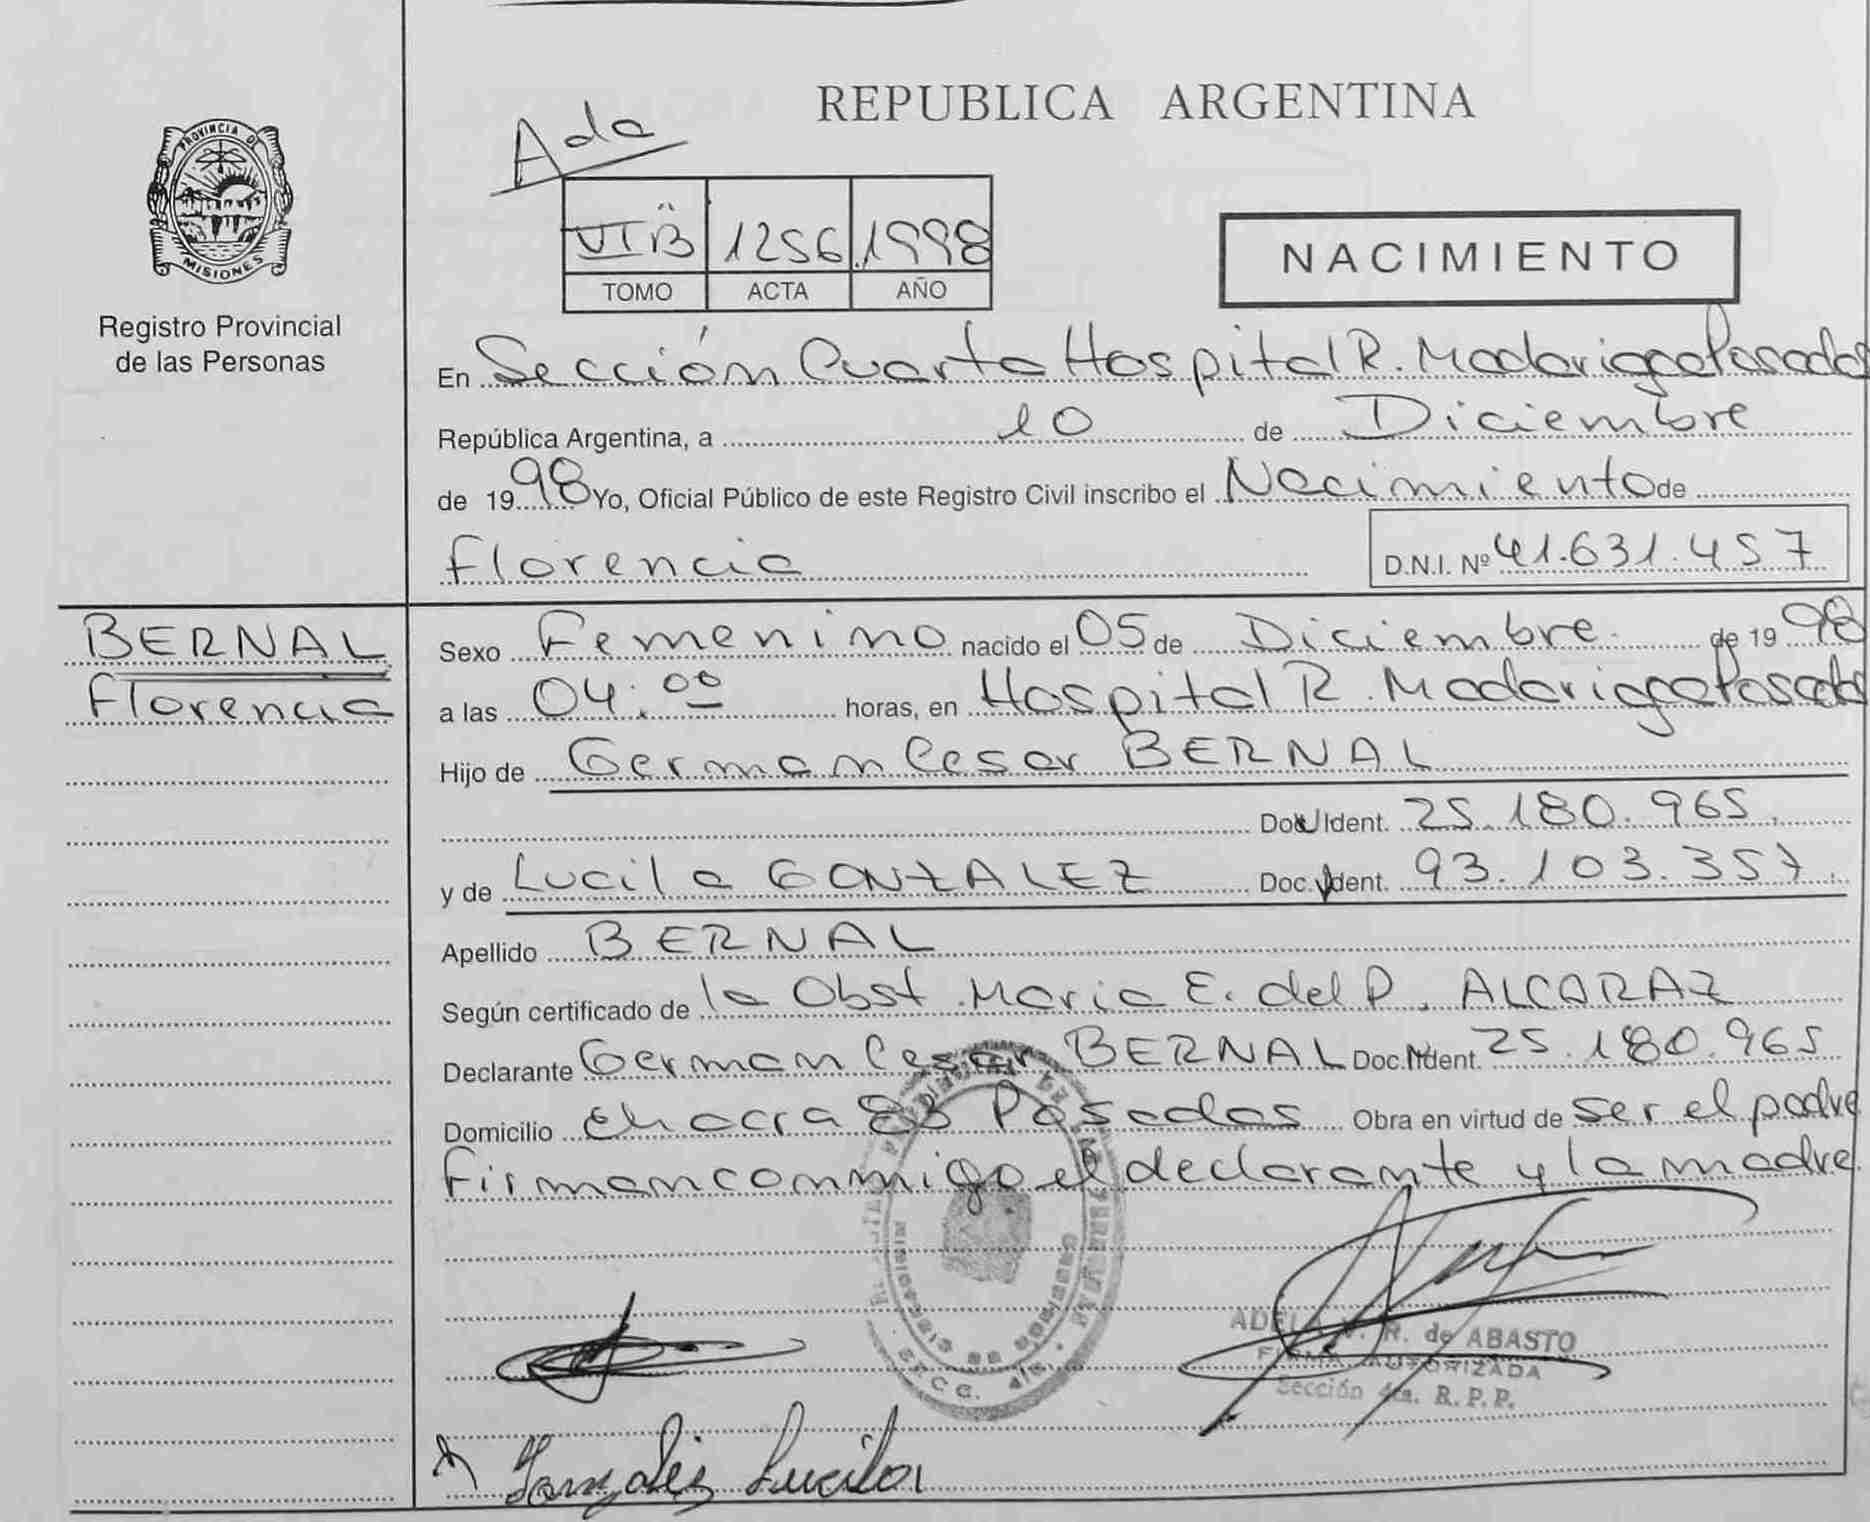 REPUBLICA ARGENTINA
Ada
PROVINCIA DE
MISIONES
Registro Provincial
de las Personas
VI B 1256 1998
TOMO ACTA AÑO
NACIMIENTO
En Sección Cuarta Hospital R. Madariaga Posadas
República Argentina, a 10 de Diciembre
de 1998 Yo, Oficial Público de este Registro Civil inscribo el Nacimiento de
Florencia D.N.I. Nº 41.631.457
BERNAL
Florencia
Sexo Femenino nacido el 05 de Diciembre de 1998
a las 04:00 horas, en Hospital R. Madariaga Posadas
Hijo de German Cesar BERNAL
Doc. Ident. 25.180.965.
y de Lucila GONZALEZ Doc. Ident. 93.103.357.
Apellido BERNAL
Según certificado de la Obst. Maria E. del P. ALCARAZ
Declarante German Cesar BERNAL Doc. Ident. 25.180.965
Domicilio chacra 83 Posadas Obra en virtud de ser el padre
Firman conmigo el declarante y la madre.
de ABASTO
FIRMA AUTORIZADA
Sección 4ta. R.P.P.
Gonzales Lucila